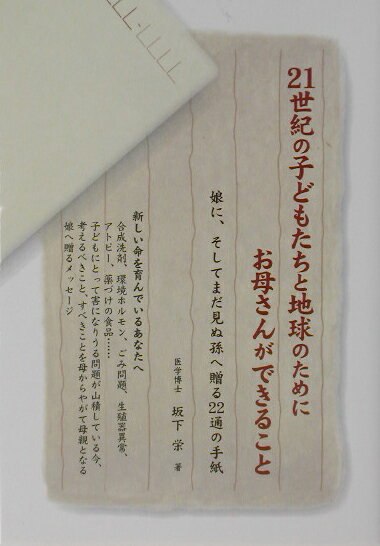 21世紀の子どもたちと地球のために
お母さんができること
娘に、そしてまだ見ぬ孫へ贈る22通の手紙
医学博士 坂下 栄 著
新しい命を育んでいるあなたへ
合成洗剤、環境ホルモン、ごみ問題、生殖器異常、
アトピー、薬づけの食品……
子どもにとって害になりうる問題が山積している今、
考えるべきこと、すべきことを母からやがて母親となる
娘へ贈るメッセージ